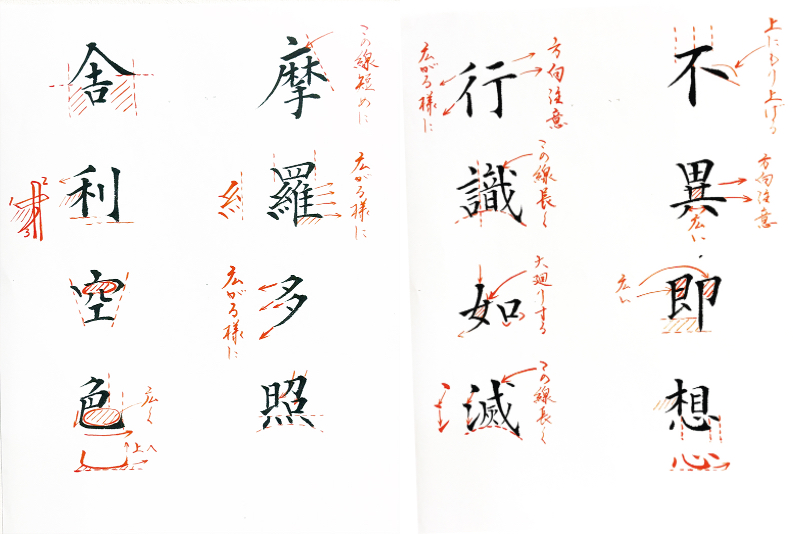 上にもり上げる
方向注意
不異即想
広に
広い
心
方向注意
この線長く
大廻りする
この線長く
行識如滅
広がる様に
この線短めに
広がる様に
摩羅多照
糸
広がる様に
広く
上へ
舎利空色
1
2
3